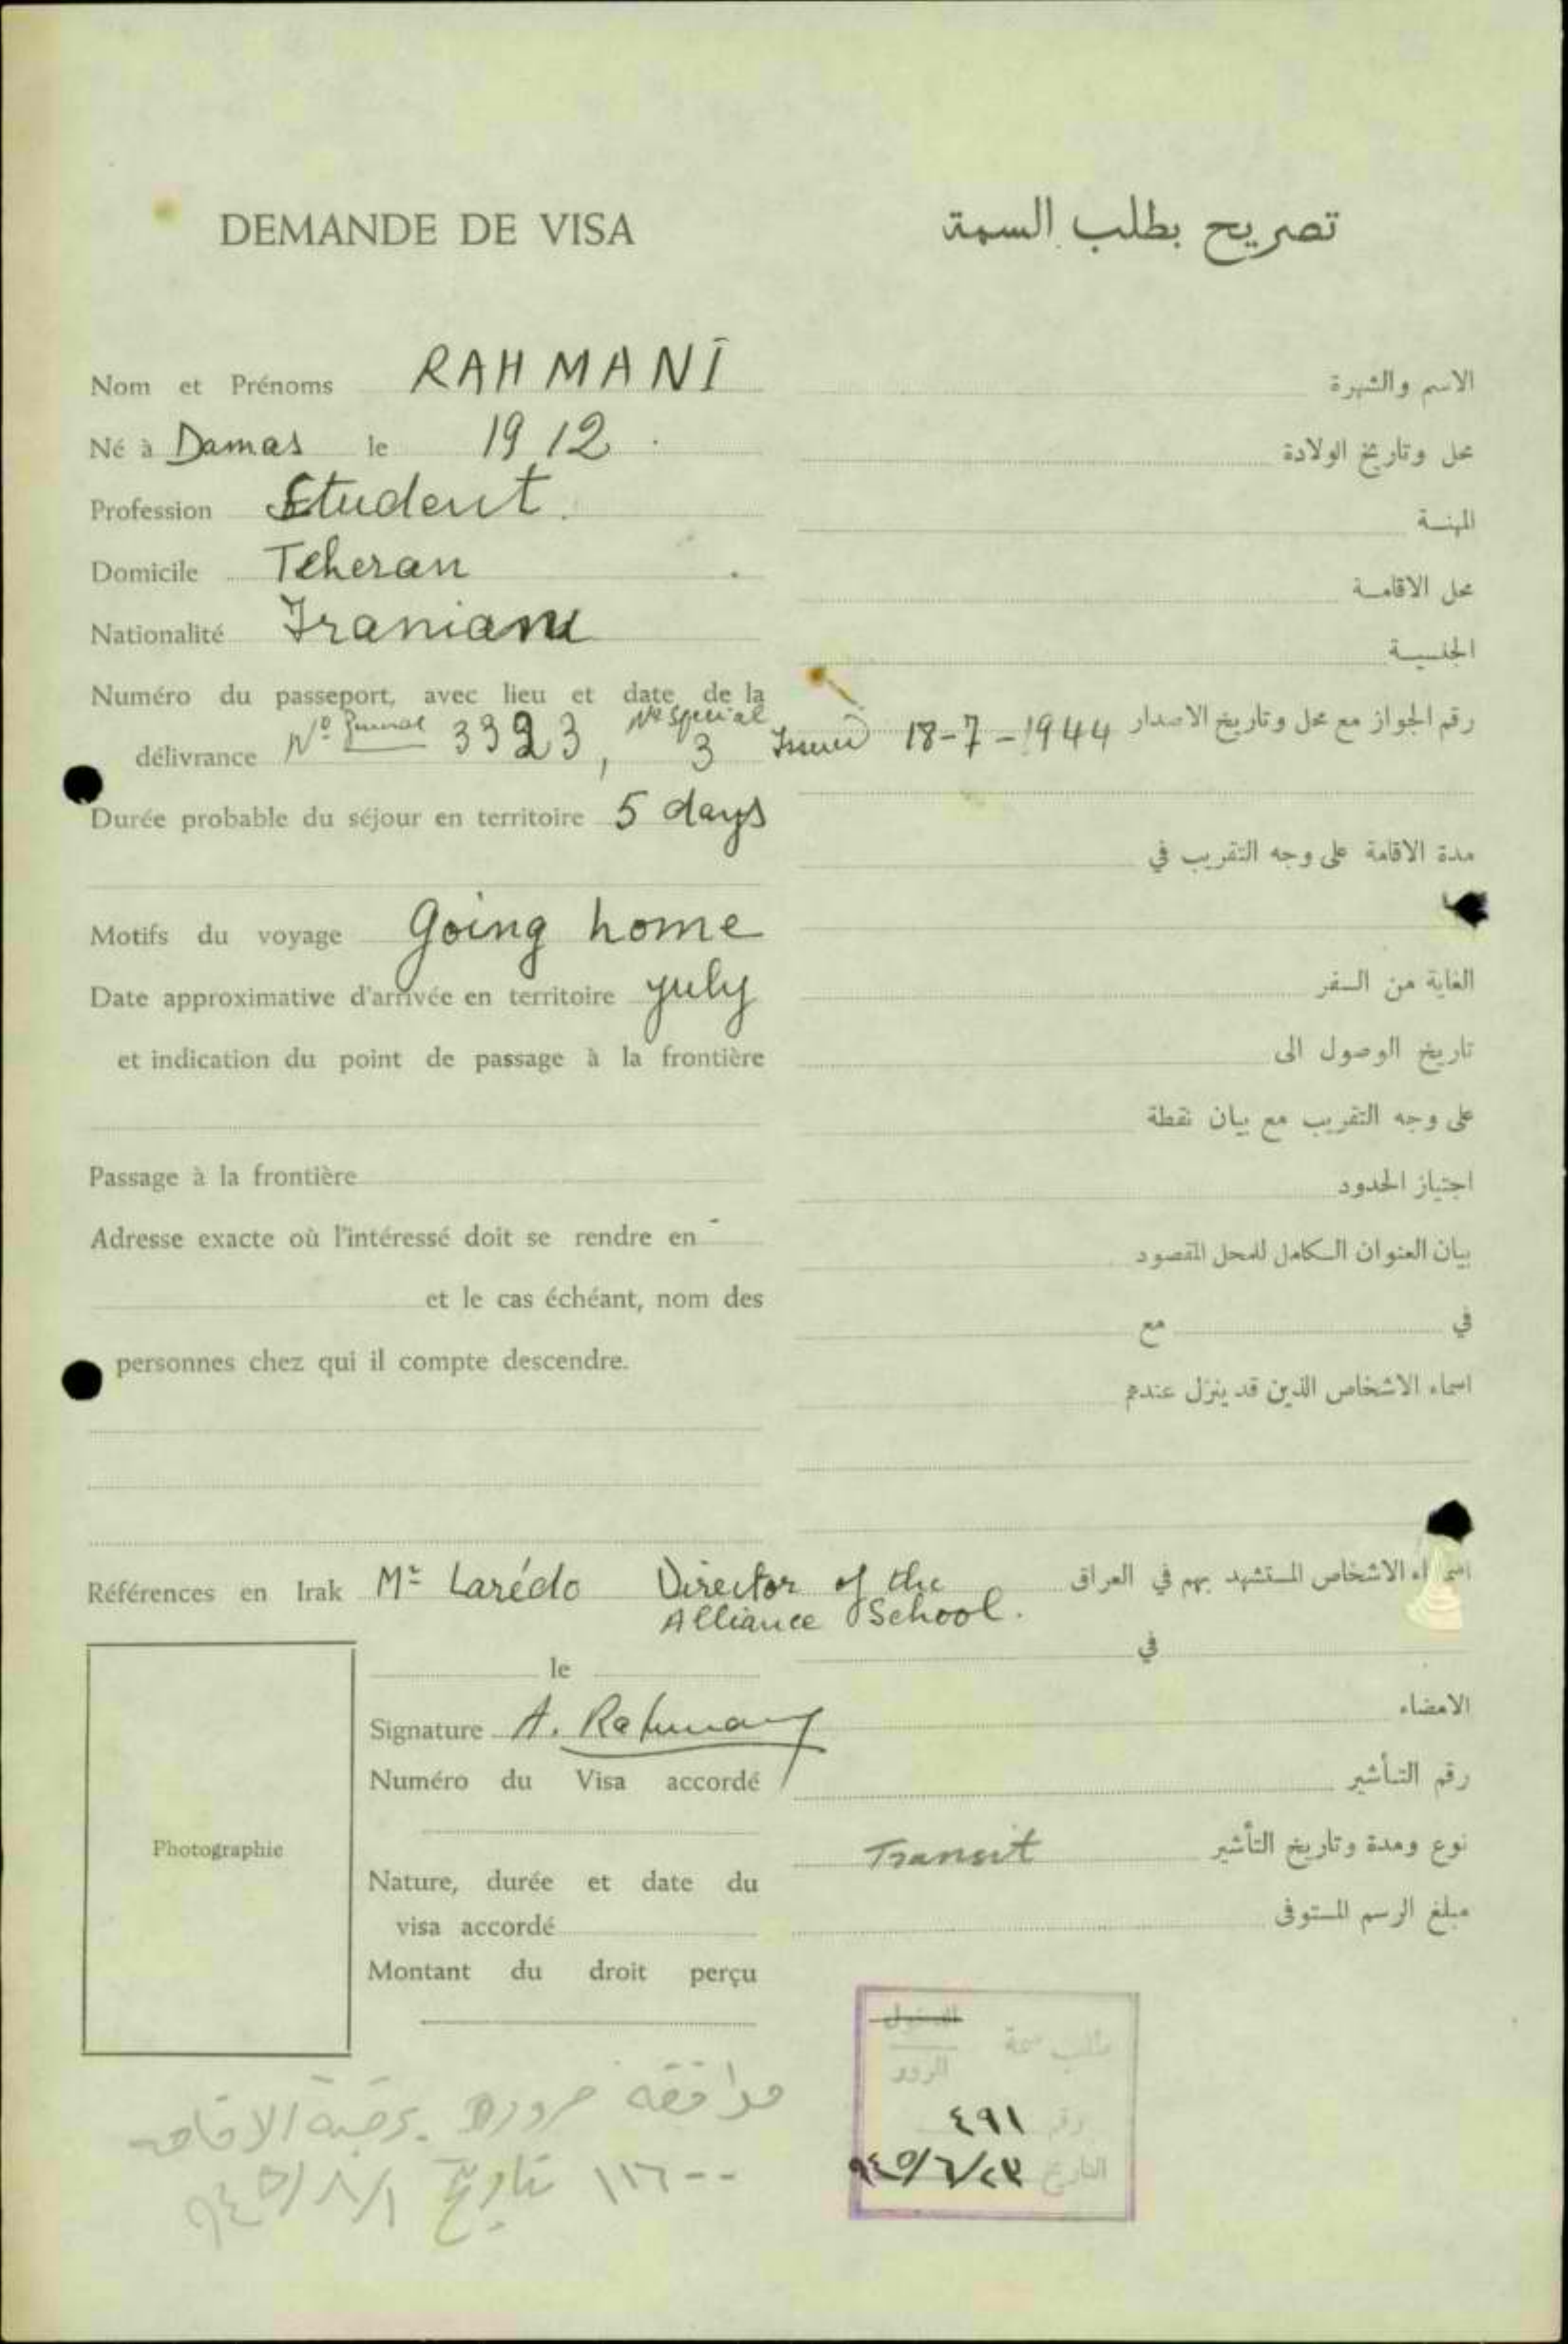 DEMANDE DE VISA
تصريح بطلب السمة
Nom et Prénoms RAHMANI
الاسم والشهرة
Né à Damas le 1912
محل وتاريخ الولادة
Profession Student
المهنة
Domicile Teheran
محل الاقامة
Nationalité
الجنسية
Numéro du passeport, avec lieu et date de la
délivrance Nº 3323, Nº Special 3 Issued 18-7-1944
رقم الجواز مع محل وتاريخ الاصدار
Durée probable du séjour en territoire 5 days
مدة الاقامة على وجه التقريب في
Motifs du voyage Going home
الغاية من السفر
Date approximative d'arrivée en territoire yuly
تاريخ الوصول الى
et indication du point de passage à la frontière
على وجه التقريب مع بيان نقطة
Passage à la frontière
اجتياز الحدود
Adresse exacte où l'intéressé doit se rendre en -
بيان العنوان الكامل للمحل المقصود
et le cas échéant, nom des
في مع
personnes chez qui il compte descendre.
اسماء الاشخاص الذين قد ينزل عندهم
Références en Irak Mr Larédo Director of the
Alliance School.
الاشخاص المستشهد بهم في العراق
le
في
Signature A. Rahmany
الامضاء
Numéro du Visa accordé
رقم التأشير
Photographie
Nature, durée et date du
visa accordé
Transit
نوع ومدة وتاريخ التأشير
Montant du droit perçu
مبلغ الرسم المستوفى
طلب سمة
رقم ٤٩١
التاريخ
موافقة الاقامة
تاريخ ٩٤٥/٨/١